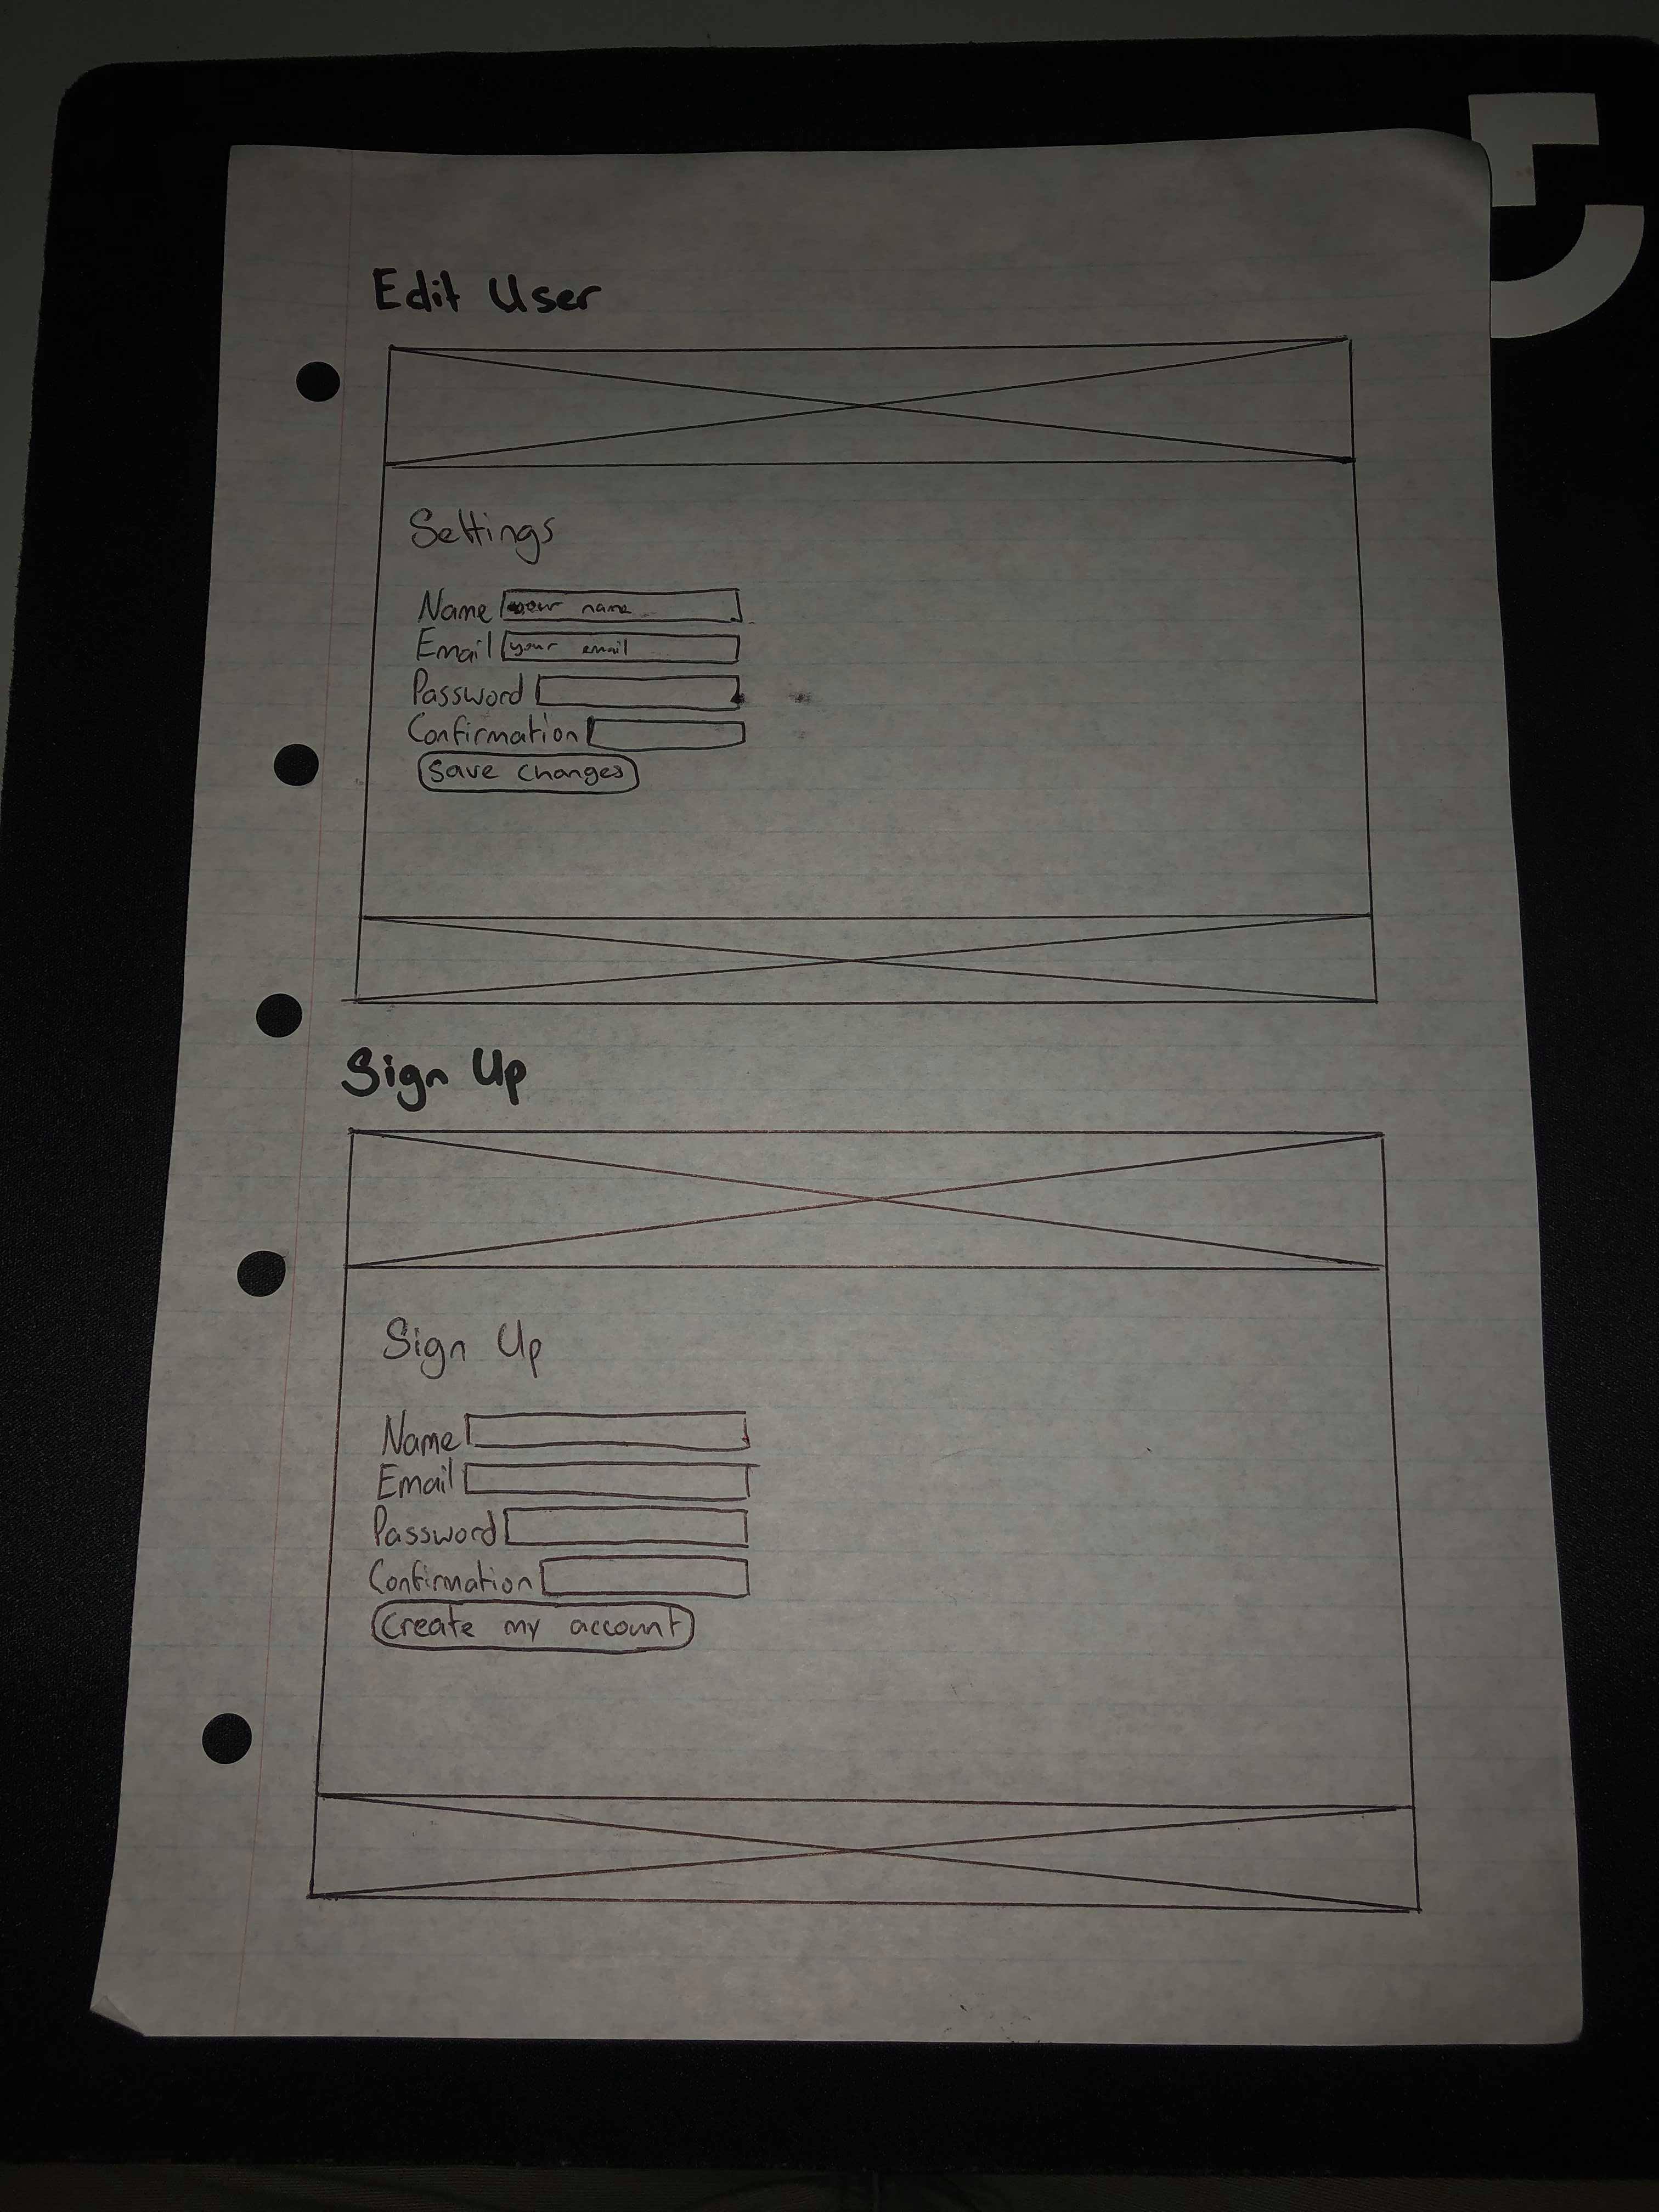 Edit User
Settings
Name your name
Email your email
Password
Confirmation
Save changes
Sign Up
Sign Up
Name
Email
Password
Confirmation
Create my account